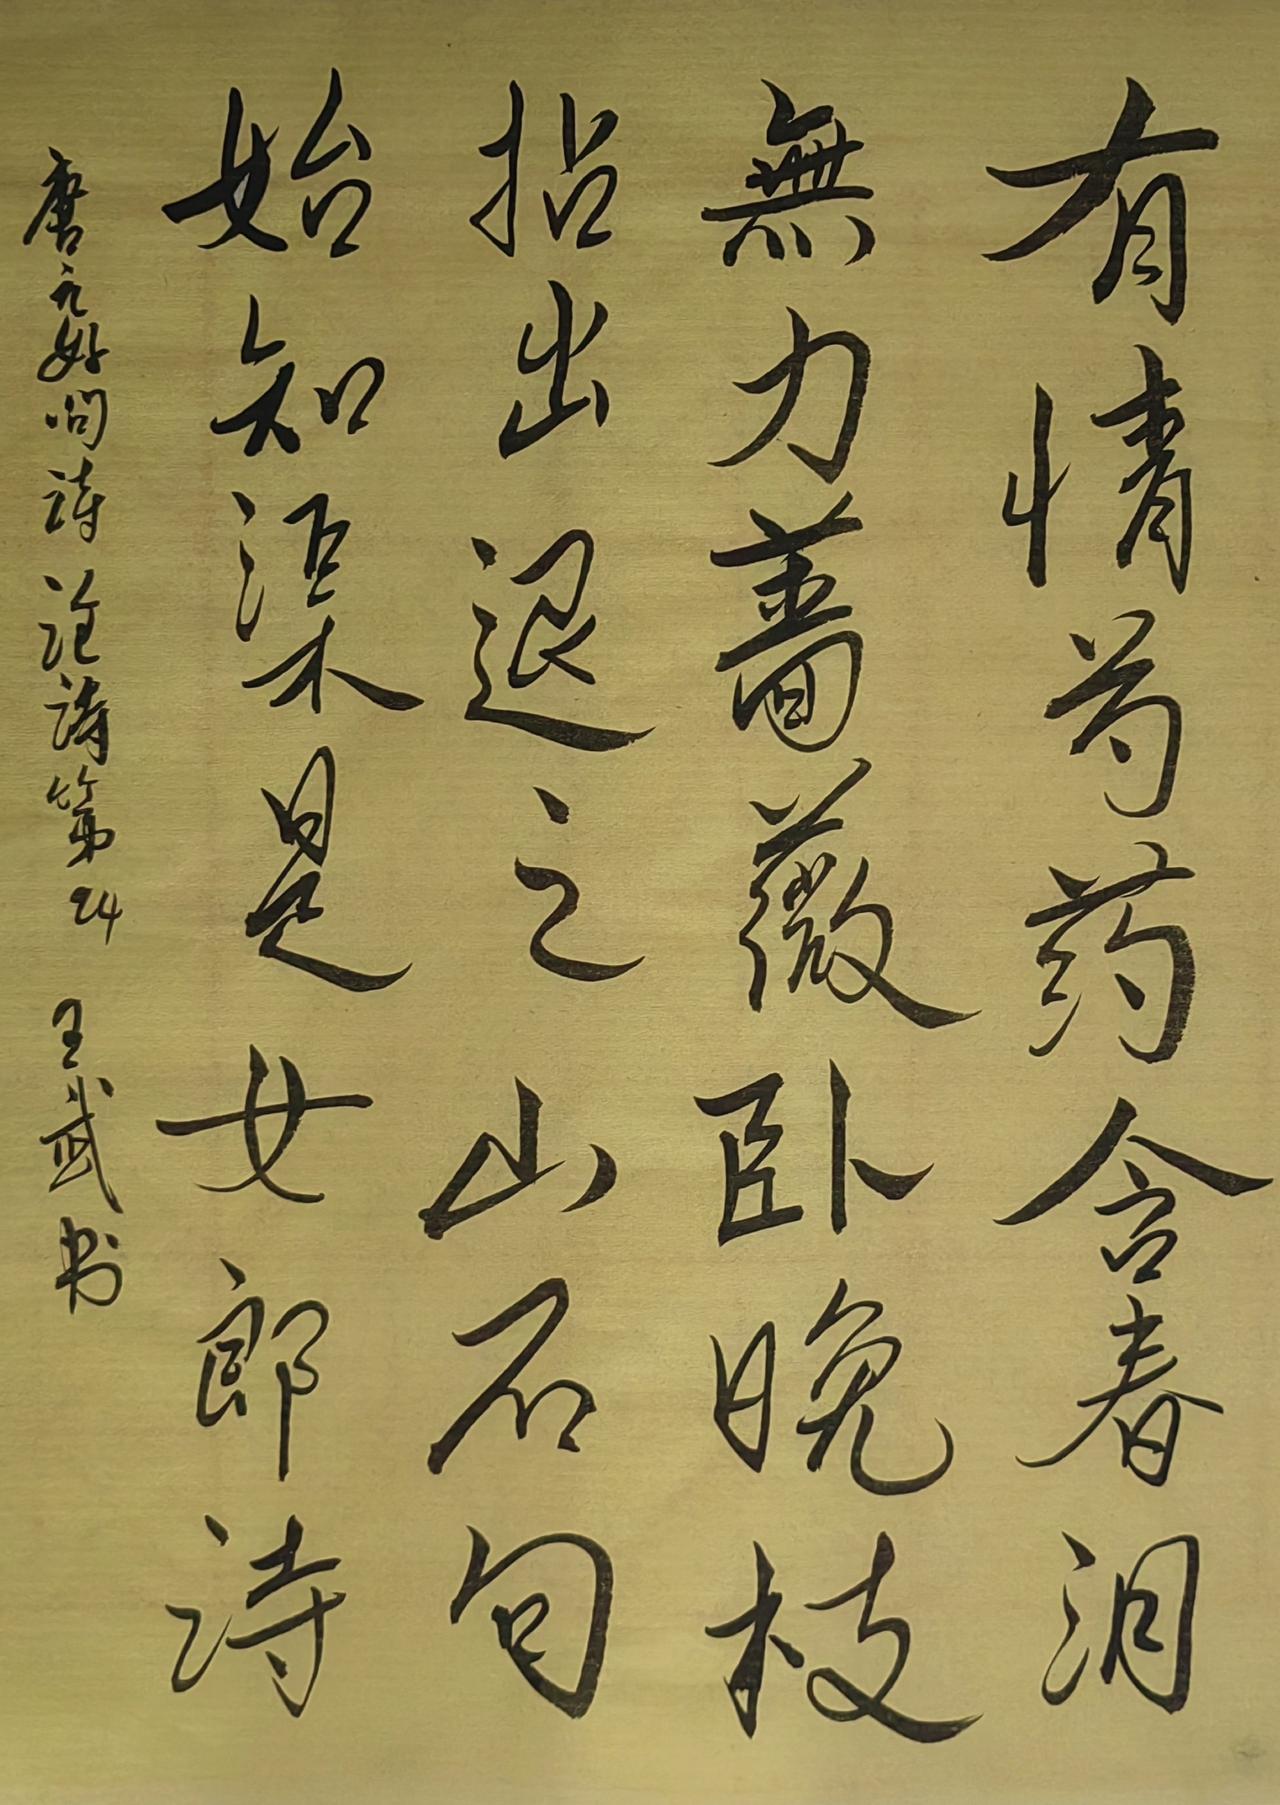 有情芍药含春泪
無力蔷薇卧晚枝
拈出退之山石句
始知渠是女郎诗
唐元好问诗论诗第24 王武书